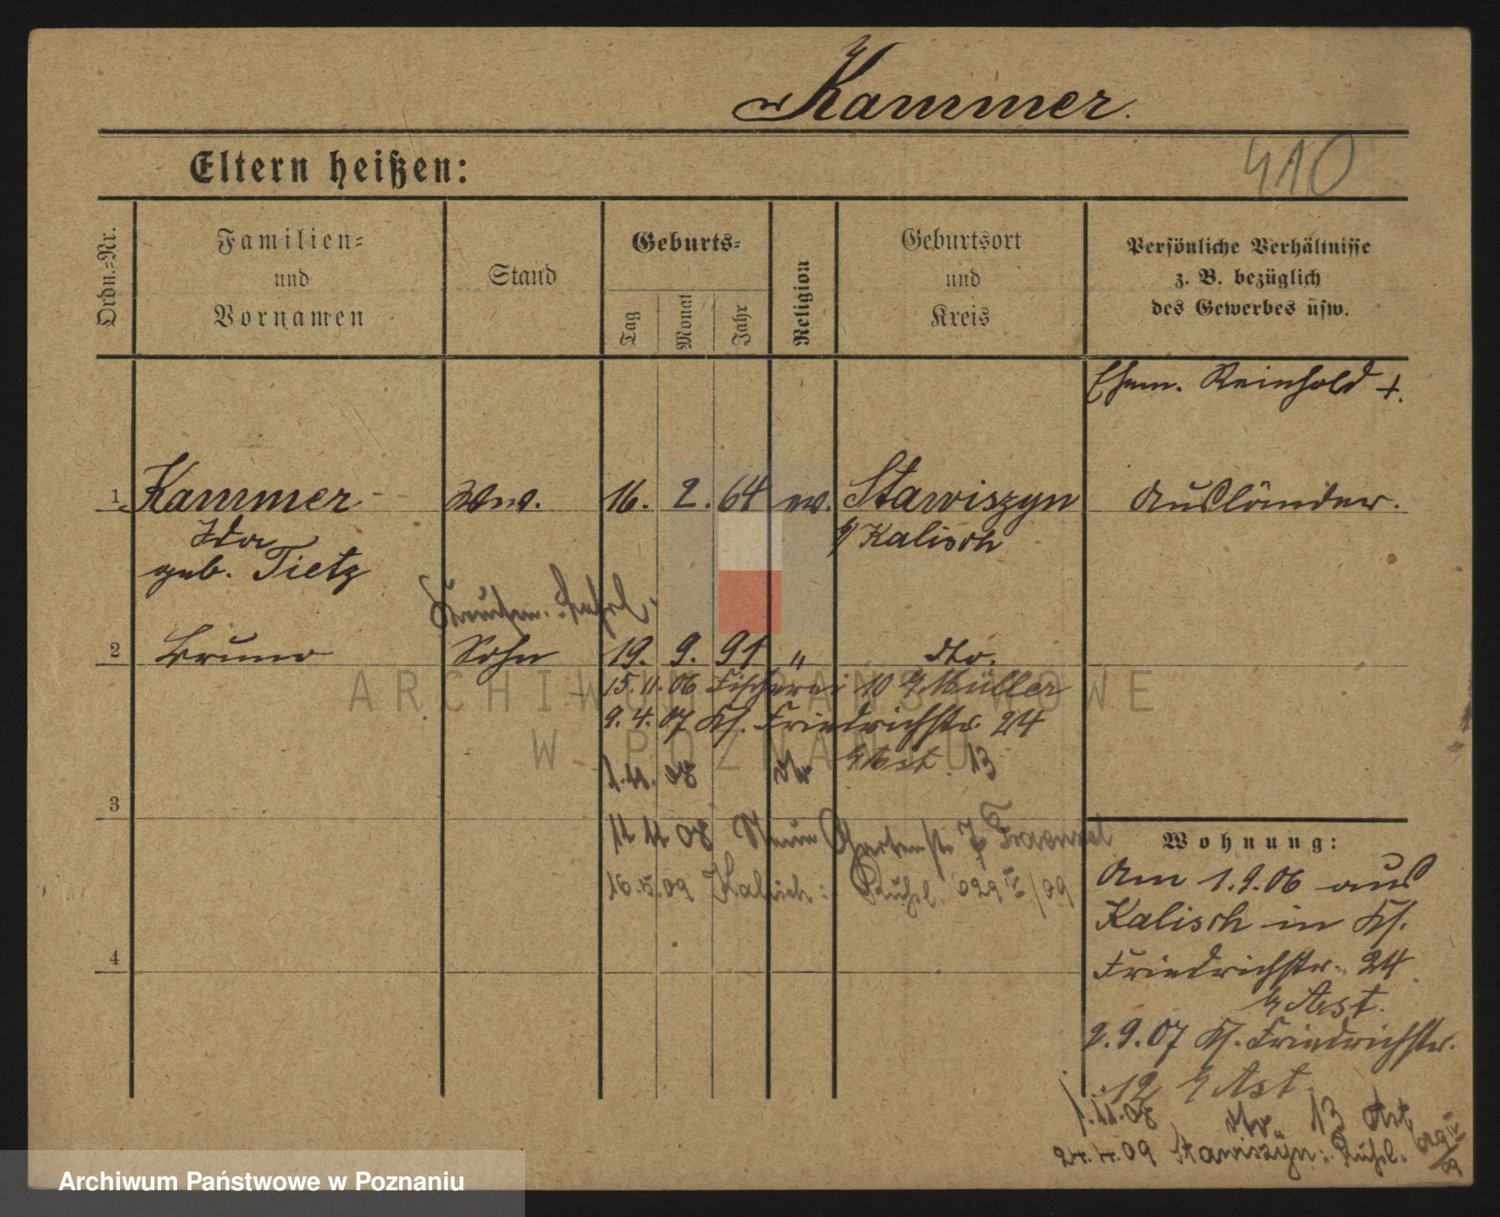 Kammer.
Eltern heißen:
410
Ordn.-Nr.
Familien-
und
Vornamen
Stand
Geburts-
Tag
Monat
Jahr
Religion
Geburtsort
und
Kreis
Persönliche Verhältnisse
z. B. bezüglich
des Gewerbes usw.
Ehem. Reinhold +.
1 Kammer Ww. 16. 2. 64 ev. Stawiszyn Ausländer.
Ida
Kalisch
geb. Tietz
2 Bruno Sohn 19. 9. 91 " dto.
15. 11. 06 Fischerei 10 b/ Müller
9. 4. 07 Kf. Friedrichstr. 24
1. 11. 08 dto b/ Ast. 13
3
11 11 08 Neue Gartenstr. 7
16. 5. 09 Kalisch: 629 IV/09
4
Wohnung:
Am 1.9.06 aus
Kalisch in Kf.
Friedrichstr. 24
b/ Ast.
2.9.07 Kf. Friedrichstr.
12 b/ Ast
1.11.08 dto. 13
24.4.09 Stawiszyn: 629 IV/09
ARCHIWUM PAŃSTWOWE
W POZNANIU
Archiwum Państwowe w Poznaniu